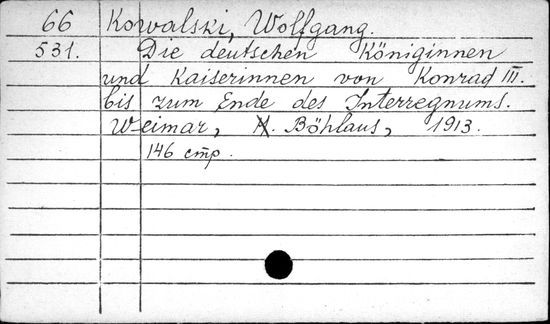 66 Kowalski, Wolfgang.
531. Die deutschen Königinnen
und Kaiserinnen von Konrad III.
bis zum Ende des Interregnums.
Weimar, H. Böhlaus, 1913.
146 стр.